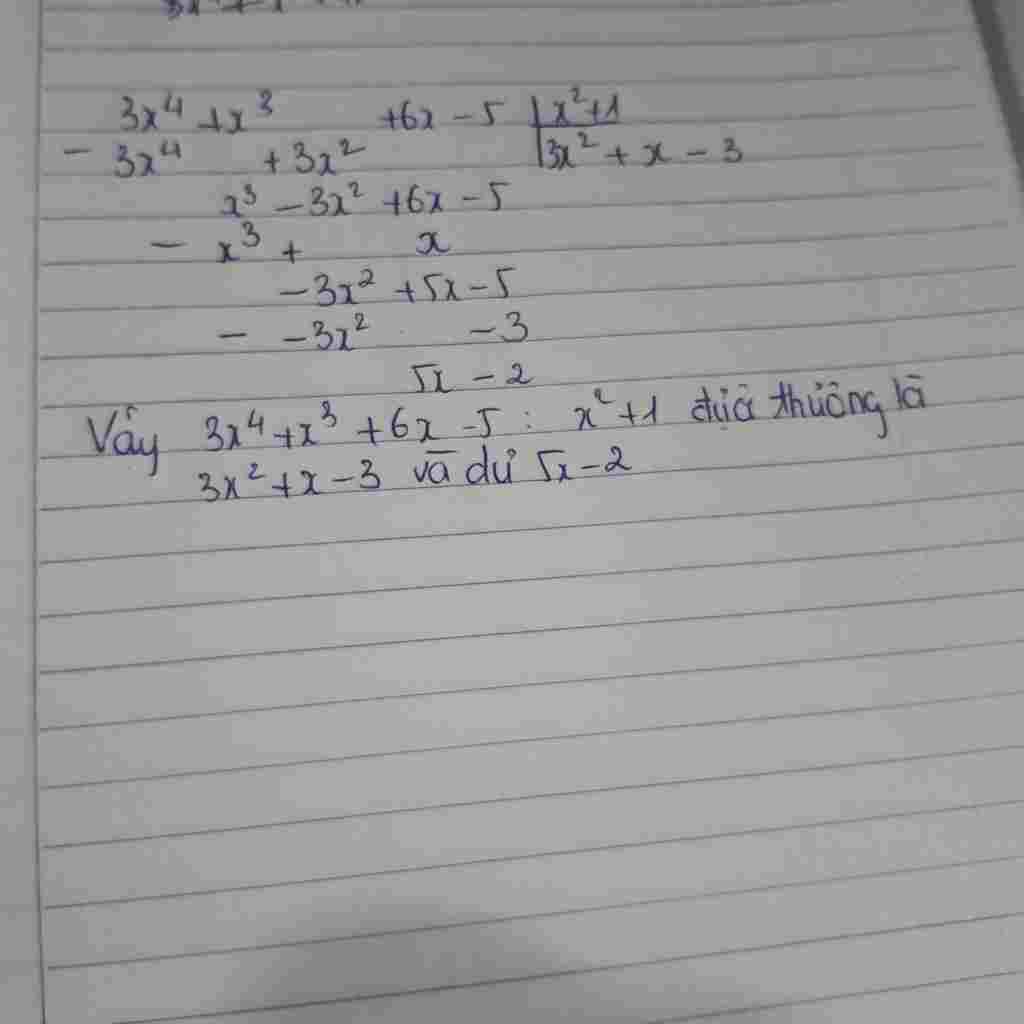 3x⁴ + x³ +6x - 5 | x²+1
- 3x⁴ + 3x² | 3x² + x - 3
x³ - 3x² +6x - 5
- x³ + x
-3x² +5x - 5
- -3x² -3
5x - 2
Vậy 3x⁴ + x³ + 6x - 5 : x² + 1 được thương là
3x² + x - 3 và dư 5x - 2